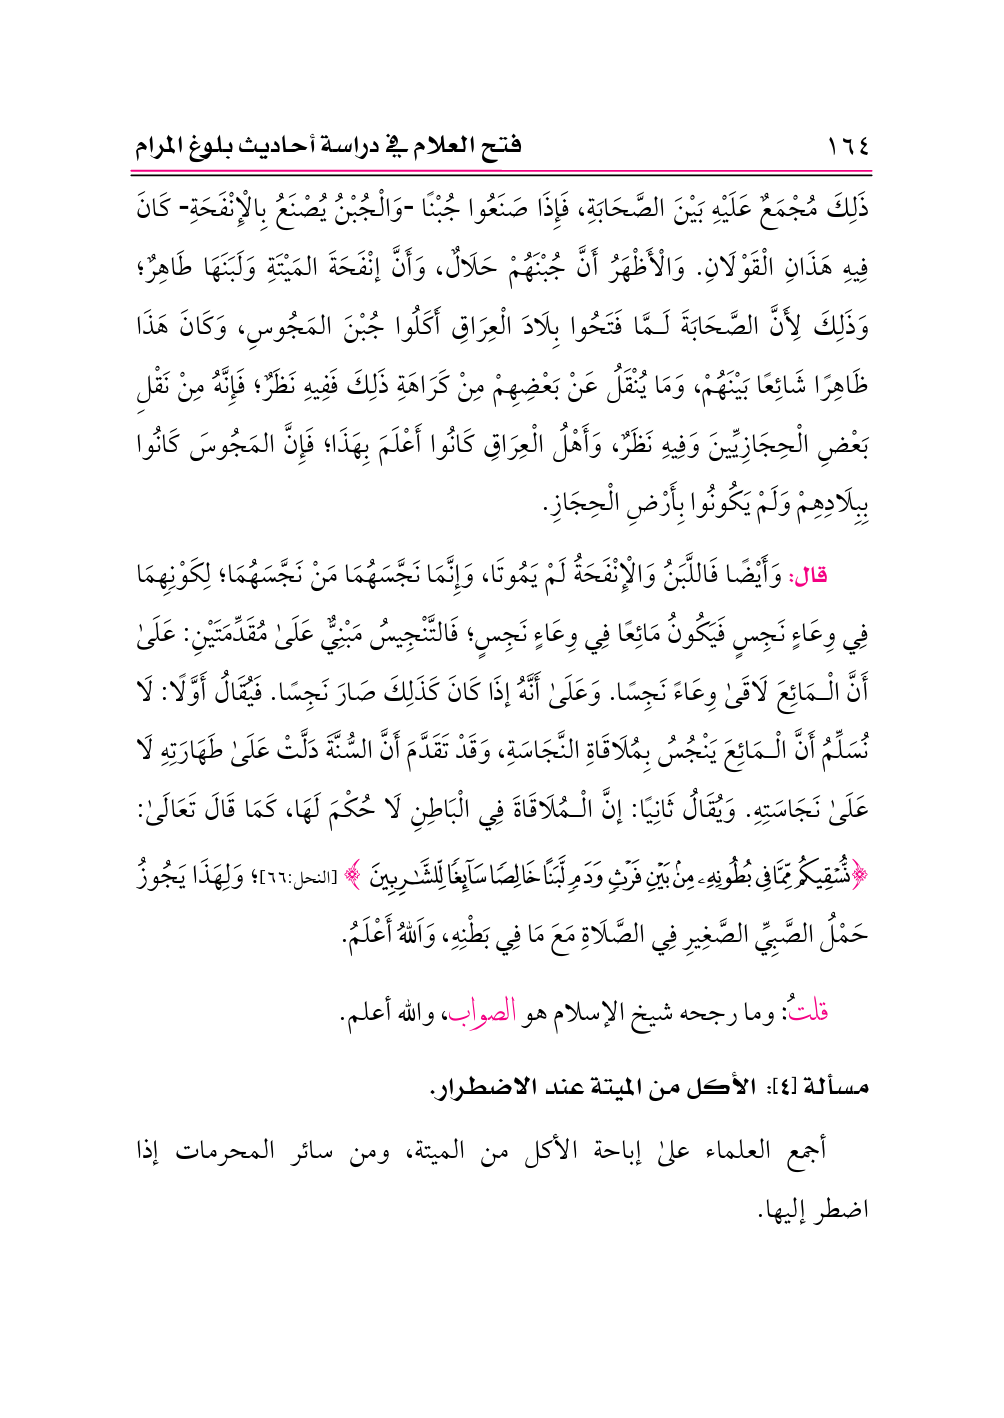 ١٦٤
فتح العلام في دراسة أحاديث بلوغ المرام
ذَلِكَ مُجْمَعٌ عَلَيْهِ بَيْنَ الصَّحَابَةِ، فَإِذَا صَنَعُوا جُبْنًا -وَالْجُبْنُ يُصْنَعُ بِالْإِنْفَحَةِ- كَانَ
فِيهِ هَذَانِ الْقَوْلَانِ. وَالْأَظْهَرُ أَنَّ جُبْنَهُمْ حَلَالٌ، وَأَنَّ إنْفَحَةَ المَيْتَةِ وَلَبَنَهَا طَاهِرٌ؛
وَذَلِكَ لِأَنَّ الصَّحَابَةَ لَـمَّا فَتَحُوا بِلَادَ الْعِرَاقِ أَكَلُوا جُبْنَ المَجُوسِ، وَكَانَ هَذَا
ظَاهِرًا شَائِعًا بَيْنَهُمْ، وَمَا يُنْقَلُ عَنْ بَعْضِهِمْ مِنْ كَرَاهَةِ ذَلِكَ فَفِيهِ نَظَرٌ؛ فَإِنَّهُ مِنْ نَقْلِ
بَعْضِ الْحِجَازِيِّينَ وَفِيهِ نَظَرٌ، وَأَهْلُ الْعِرَاقِ كَانُوا أَعْلَمَ بِهَذَا؛ فَإِنَّ المَجُوسَ كَانُوا
بِبِلَادِهِمْ وَلَمْ يَكُونُوا بِأَرْضِ الْحِجَازِ.
قال: وَأَيْضًا فَاللَّبَنُ وَالْإِنْفَحَةُ لَمْ يَمُوتَا، وَإِنَّمَا نَجَّسَهُمَا مَنْ نَجَّسَهُمَا؛ لِكَوْنِهِمَا
فِي وِعَاءٍ نَجِسٍ فَيَكُونُ مَائِعًا فِي وِعَاءٍ نَجِسٍ؛ فَالتَّنْجِيسُ مَبْنِيٌّ عَلَىٰ مُقَدِّمَتَيْنِ: عَلَىٰ
أَنَّ الْـمَائِعَ لَاقَىٰ وِعَاءً نَجِسًا. وَعَلَىٰ أَنَّهُ إذَا كَانَ كَذَلِكَ صَارَ نَجِسًا. فَيُقَالُ أَوَّلًا: لَا
نُسَلِّمُ أَنَّ الْـمَائِعَ يَنْجُسُ بِمُلَاقَاةِ النَّجَاسَةِ، وَقَدْ تَقَدَّمَ أَنَّ السُّنَّةَ دَلَّتْ عَلَىٰ طَهَارَتِهِ لَا
عَلَىٰ نَجَاسَتِهِ. وَيُقَالُ ثَانِيًا: إنَّ الْـمُلَاقَاةَ فِي الْبَاطِنِ لَا حُكْمَ لَهَا، كَمَا قَالَ تَعَالَىٰ:
﴿نُّسۡقِيكُم مِّمَّا فِي بُطُونِهِۦ مِنۢ بَيۡنِ فَرۡثٖ وَدَمٖ لَّبَنًا خَالِصٗا سَآئِغٗا لِّلشَّٰرِبِينَ﴾ [النحل:٦٦]؛ وَلِهَذَا يَجُوزُ
حَمْلُ الصَّبِيِّ الصَّغِيرِ فِي الصَّلَاةِ مَعَ مَا فِي بَطْنِهِ، وَاَللهُ أَعْلَمُ.
قلتُ: وما رجحه شيخ الإسلام هو الصواب، والله أعلم.
مسألة [٤]: الأكل من الميتة عند الاضطرار.
أجمع العلماء علىٰ إباحة الأكل من الميتة، ومن سائر المحرمات إذا
اضطر إليها.